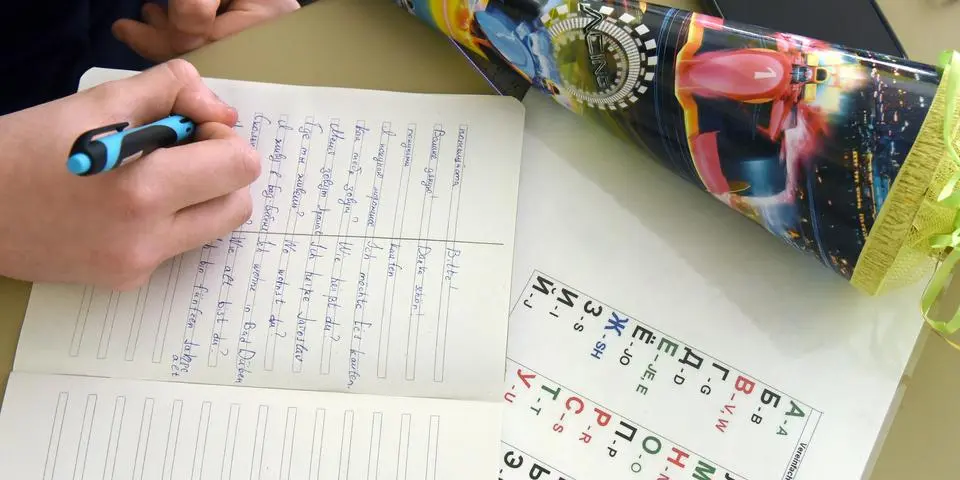 пожалуйста Bitte!
Danke schön!
Ich möchte Eis kaufen.
Как тебя зовут? Wie heißt du?
Меня зовут Ich heiße Jaroslav
Где ты живёшь? Wo wohnst du?
Я живу в Бад Ich wohne in Bad Düben
Wie alt bist du?
Ich bin fünfzehn Jahre alt
RACING
1
Vereinfach
А - A
Б - B
В - V, W
Г - G
Д - D
Е - JE, E
Ё - JO
Ж - SH
З - S
И - I
Й - J
М
Н - N
О - O
П - P
Р - R
С - S
Т - T
У - U
Ь
Э